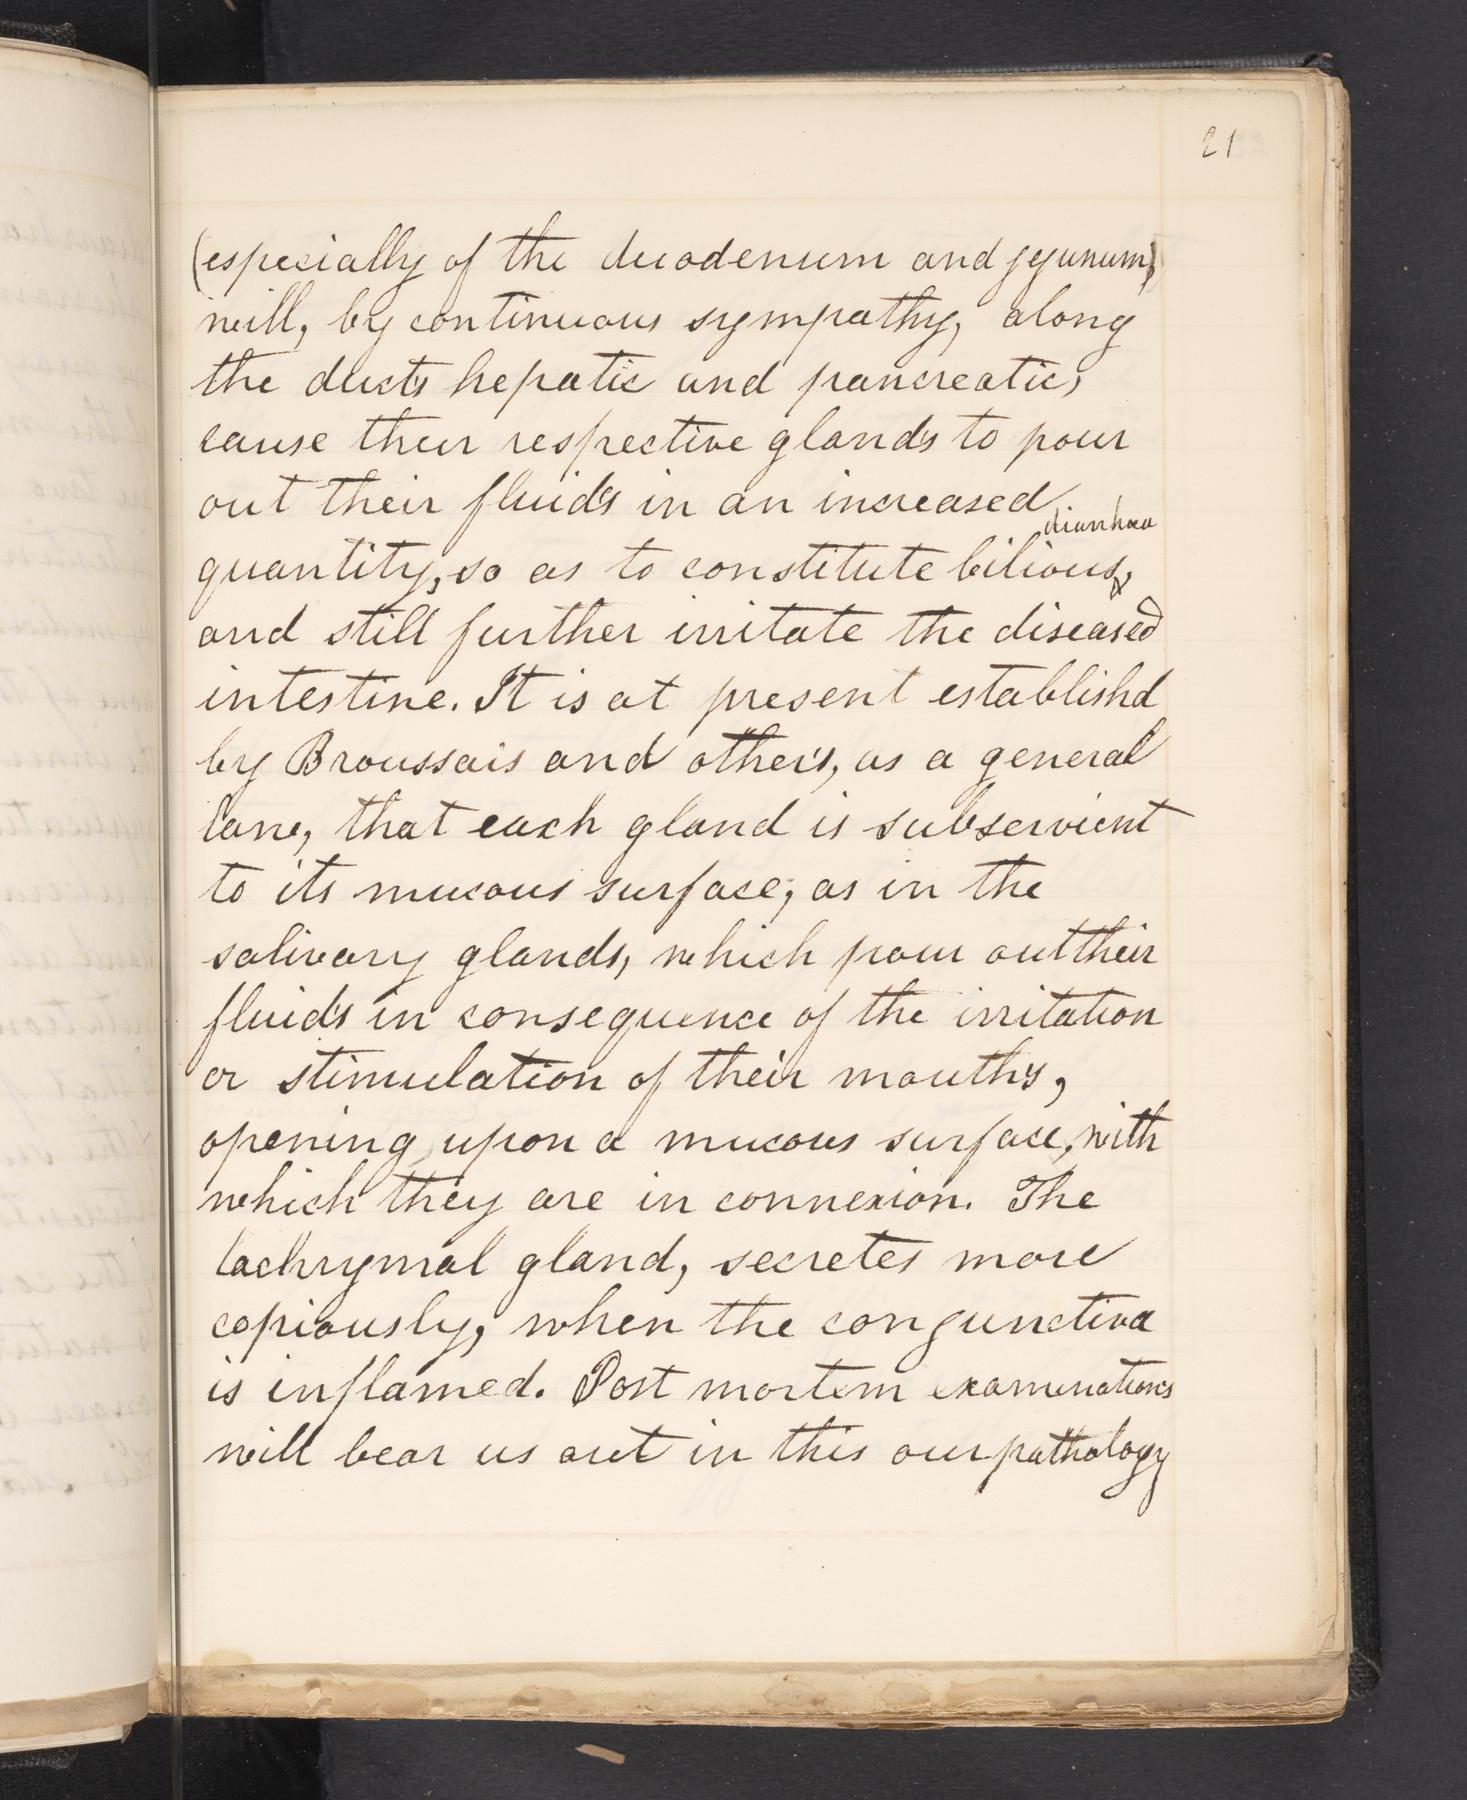 21
(especially of the duodenum and jejunum)
will, by continuous sympathy, along
the ducts hepatic and pancreatic,
cause their respective glands to pour
out their fluids in an increased
diarrhœa
quantity, so as to constitute bilious,
and still further irritate the diseased
intestine. It is at present establishd
by Broussais and others, as a general
law, that each gland is subservient
to its mucous surface; as in the
salivary glands, which pour out their
fluids in consequence of the irritation
or stimulation of their mouths,
opening upon a mucous surface, with
which they are in connexion. The
lachrymal gland, secretes more
copiously, when the conjunctiva
is inflamed. Post mortem examinations
will bear us out in this our pathology